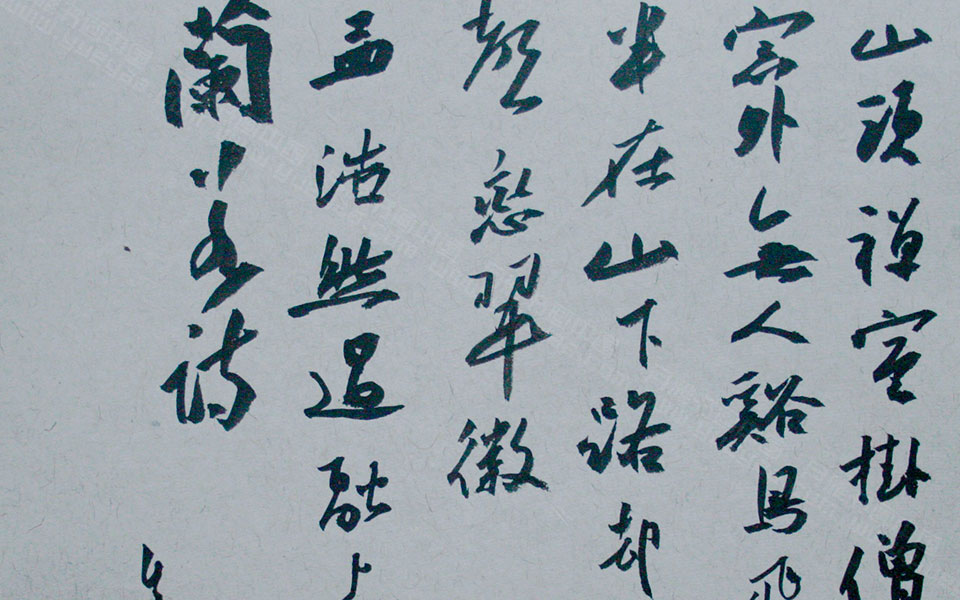 山頭禅室掛僧
窗外無人谿鳥飛
半在山下路却
聲恋翠微
孟浩然過融上
蘭若詩